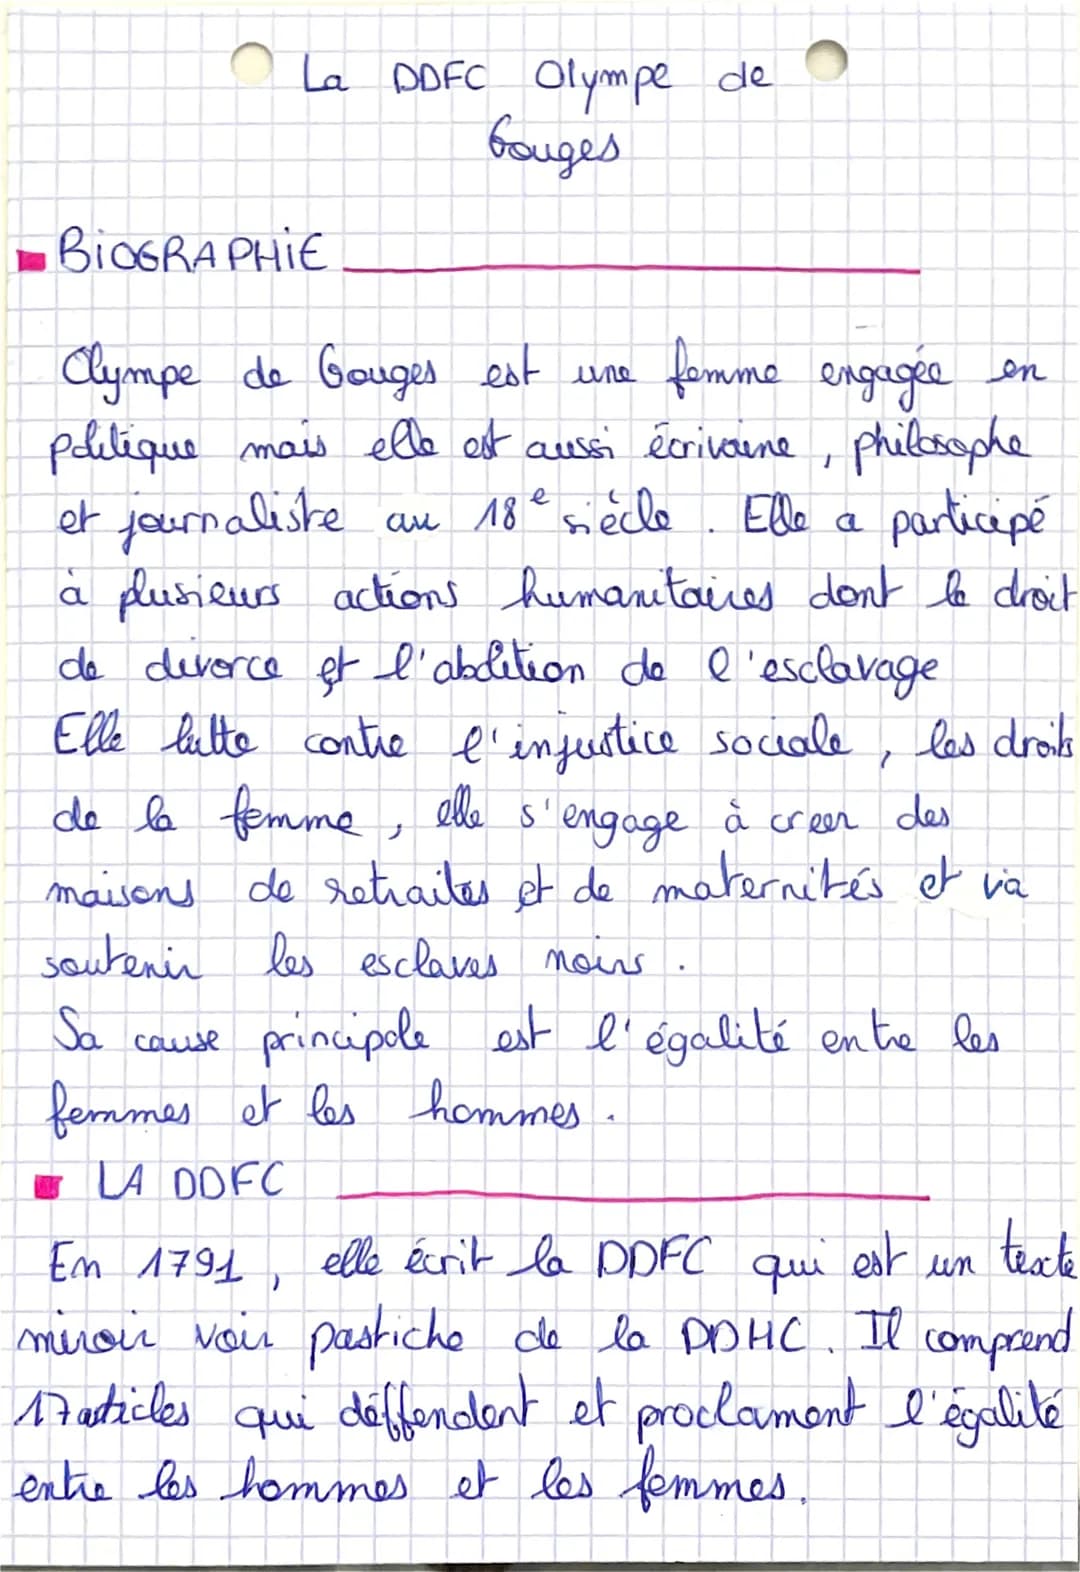 La DDFC Olympe de
Gouges
BIOGRAPHIE
Olympe de Gouges est une femme engagée en
politique mais elle est aussi écrivaine, philosophe
et journaliste au 18e siècle. Elle a participé
à plusieurs actions humanitaires dont le droit
de divorce et l'abolition de l'esclavage
Elle lutte contre l'injustice sociale, les droits
de la femme, elle s'engage à creer des
maisons de retraites et de maternités et va
soutenir les esclaves noirs.
Sa cause principale est l'égalité entre les
femmes et les hommes.
LA DDFC
En 1791, elle écrit la DDFC qui est un texte
miroir voir pastiche de la DDHC. Il comprend
17 articles qui déffendent et proclament l'égalité
entre les hommes et les femmes.